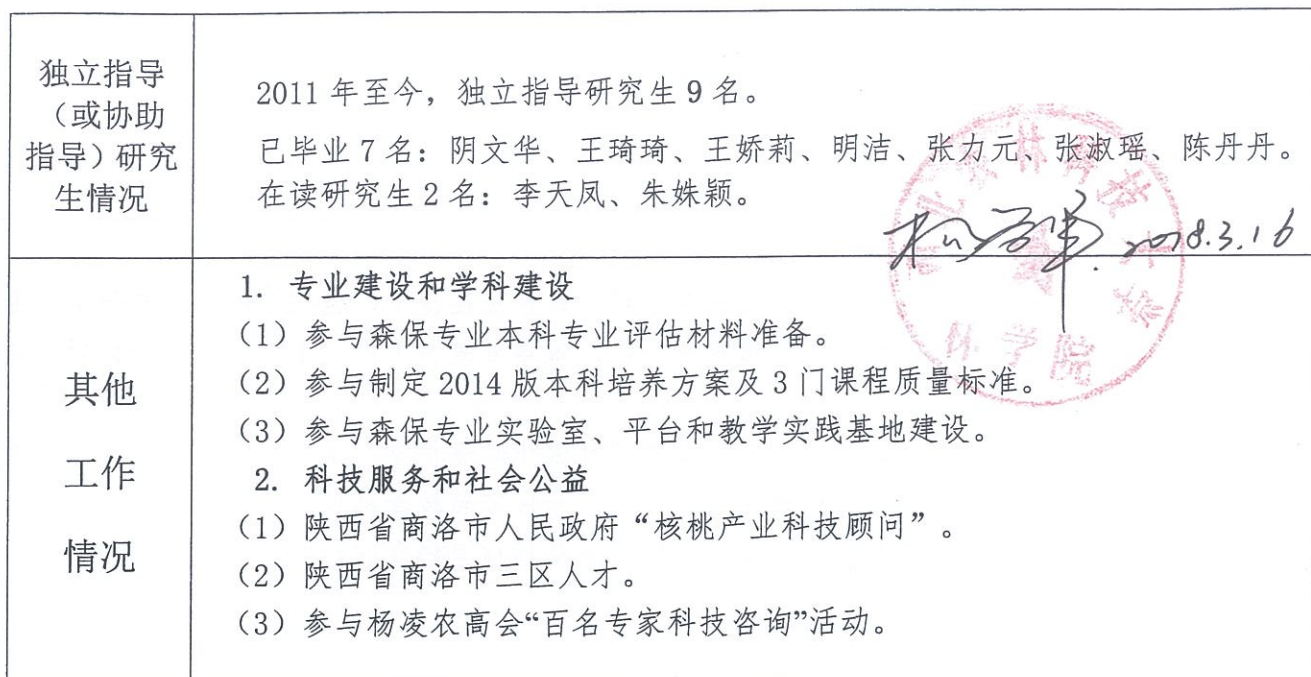 独立指导
（或协助
指导）研究
生情况
2011年至今，独立指导研究生9名。
已毕业7名：阴文华、王琦琦、王娇莉、明洁、张力元、张淑瑶、陈丹丹。
在读研究生2名：李天凤、朱姝颖。
2018.3.16
西北农林科技大学
林学院
其他
工作
情况
1. 专业建设和学科建设
（1）参与森保专业本科专业评估材料准备。
（2）参与制定2014版本科培养方案及3门课程质量标准。
（3）参与森保专业实验室、平台和教学实践基地建设。
2. 科技服务和社会公益
（1）陕西省商洛市人民政府“核桃产业科技顾问”。
（2）陕西省商洛市三区人才。
（3）参与杨凌农高会“百名专家科技咨询”活动。